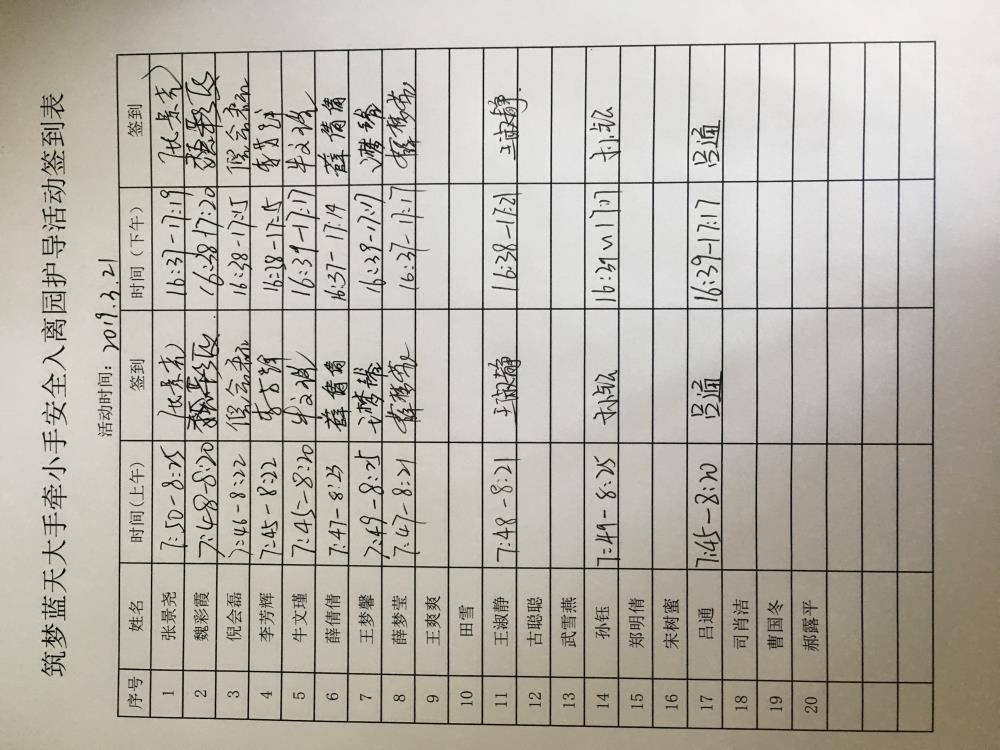 筑梦蓝天大手牵小手安全入离园护导活动签到表
活动时间：2019.3.21
序号 姓名 时间(上午) 签到 时间（下午） 签到
1 张景尧 7:50-8:25 张景尧 16:37-17:19 张景尧
2 魏彩霞 7:48-8:20 魏彩霞 16:38-17:20 魏彩霞
3 倪会磊 7:46-8:22 倪会磊 16:38-17:15 倪会磊
4 李芳辉 7:45-8:22 李芳辉 16:38-17:15 李芳辉
5 牛文瑾 7:45-8:20 牛文瑾 16:39-17:17 牛文瑾
6 薛倩倩 7:47-8:23 薛倩倩 16:37-17:14 薛倩倩
7 王梦馨 7:49-8:25 王梦馨 16:39-17:17 王梦馨
8 薛梦莹 7:47-8:21 薛梦莹 16:37-17:17 薛梦莹
9 王爽爽
10 田雪
11 王淑静 7:48-8:21 王淑静 16:38-17:21 王淑静
12 古聪聪
13 武雪燕
14 孙钰 7:49-8:25 孙钰 16:39~17:17 孙钰
15 郑明倩
16 宋树蜜
17 吕通 7:45-8:20 吕通 16:39-17:17 吕通
18 司肖洁
19 曹国冬
20 郝露平